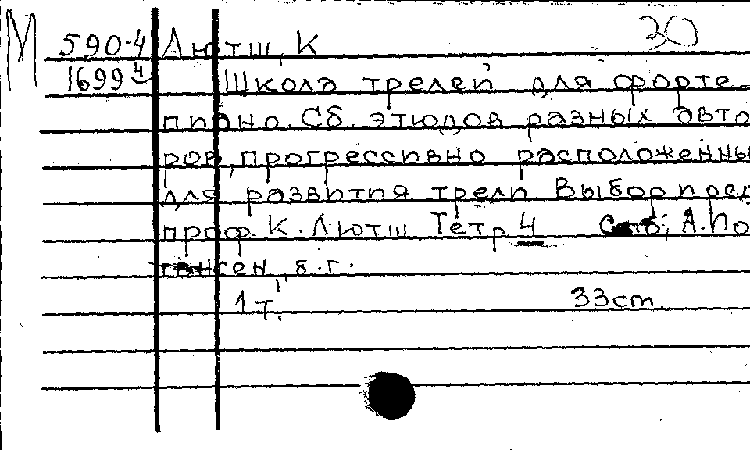 М 590-4 Лютш, К 30
1699 4 Школа трелей для форте-
пиано. Сб. этюдов разных авто
ров, прогрессивно расположенны
для развития трели Выбор пред
проф. К. Лютш Тетр 4 Спб; А. Ио
гансен, б.г.
1 т. 33cm.